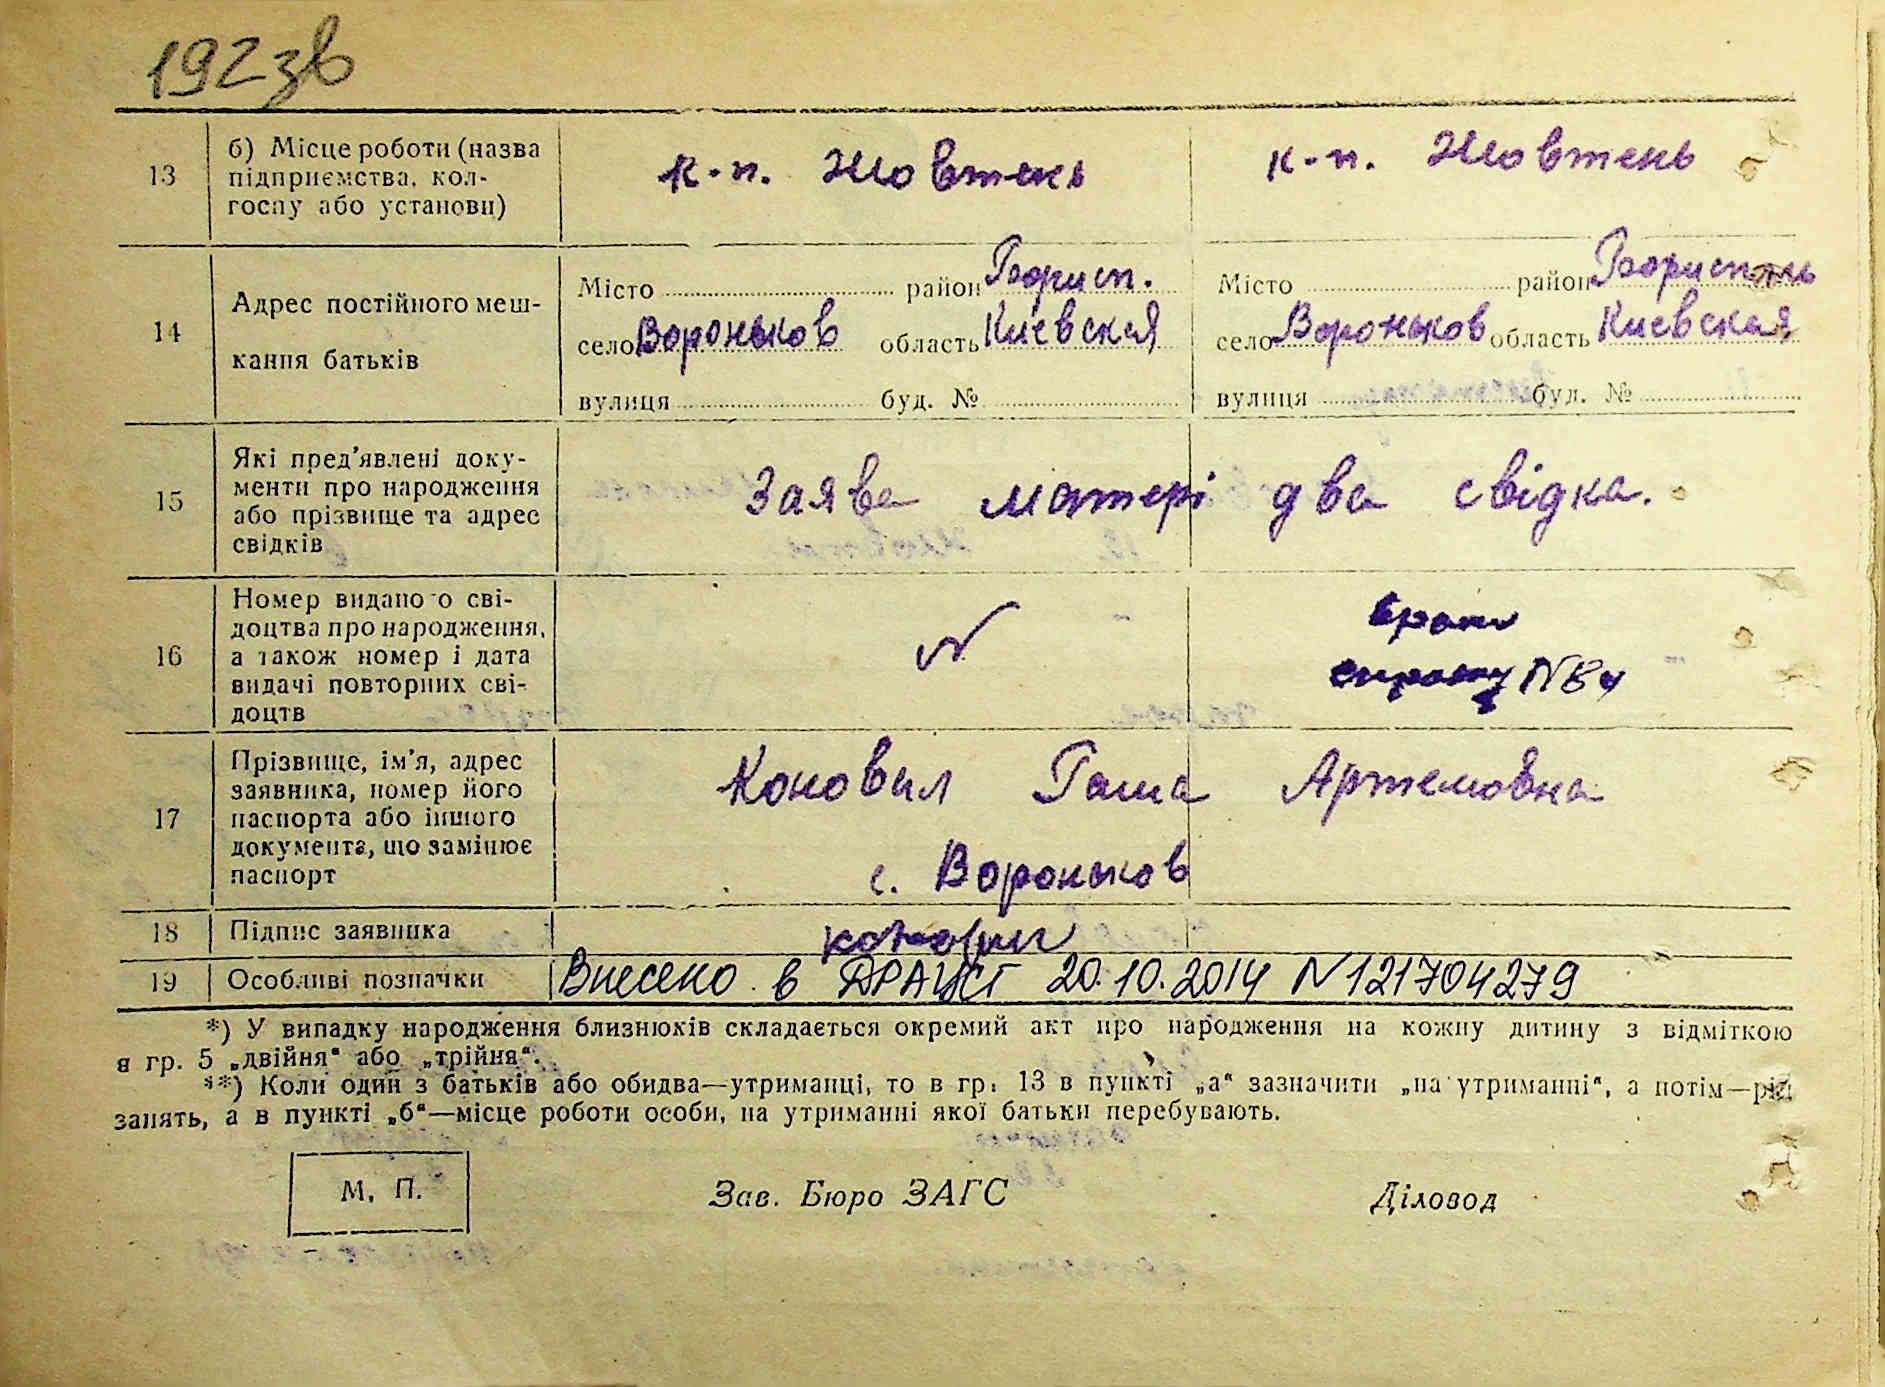 192зв
13
б) Місце роботи (назва
підприємства, кол-
госпу або установи)
к-п. Жовтень
к-п. Жовтень
14
Адрес постійного меш-
кання батьків
Місто район Борисп.
село Вороньков область Киевская
вулиця буд. №
Місто район Бориспиль
село Вороньков область Киевская
вулиця буд. №
15
Які пред'явлені доку-
менти про народження
або прізвище та адрес
свідків
Заява матері два свідка.
16
Номер видано о сві-
доцтва про народження,
а також номер і дата
видачі повторних сві-
доцтв
N
17
Прізвище, ім'я, адрес
заявника, номер його
паспорта або іншого
документа, що замінює
паспорт
Коновал Гаша Артемовна
с. Вороньков
18
Підпис заявника
19
Особливі позначки
Внесено в ДРАЦСГ 20.10.2014 N121704279
*) У випадку народження близнюків складається окремий акт про народження на кожну дитину з відміткою
в гр. 5 „двійня“ або „трійня“.
**) Коли один з батьків або обидва—утриманці, то в гр. 13 в пункті „а“ зазначити „на утриманні“, а потім—рід
занять, а в пункті „б“—місце роботи особи, на утриманні якої батьки перебувають.
М. П.
Зав. Бюро ЗАГС
Діловод